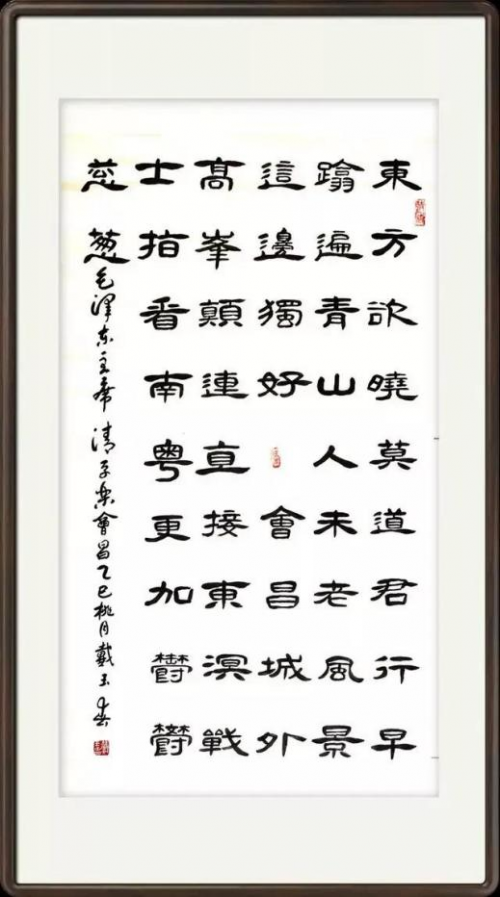 東方欲曉莫道君行早
踏遍青山人未老風景
這邊獨好 會昌城外
髙峯顛連直接東溟戰
士指看南粤更加鬱鬱
葱葱
毛澤东主席清平樂會昌乙巳桃月戴玉春